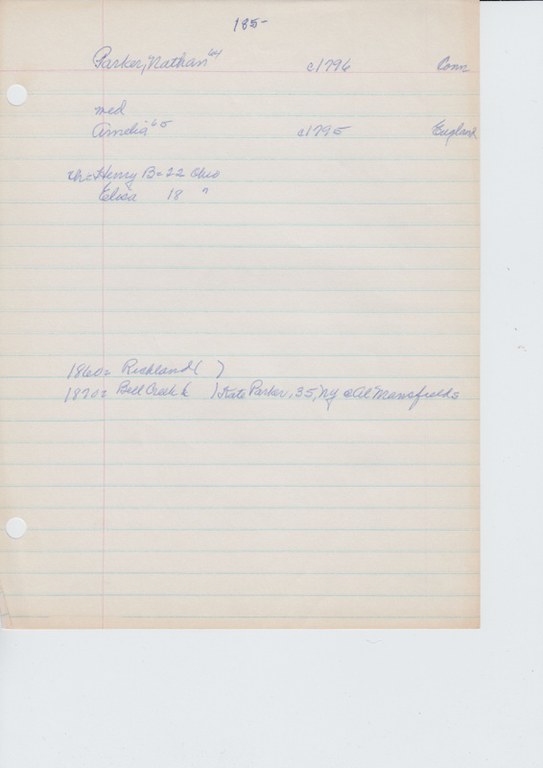 185-
Parker, Nathan 64 c1796 Conn
md
Amelia 65 c1795 England
ch: Henry B- 22 Ohio
Elisa 18 "
1860= Richland ( )
1870= Bell Creek ( ) Kate Parker, 35, NY @ Al Mansfields